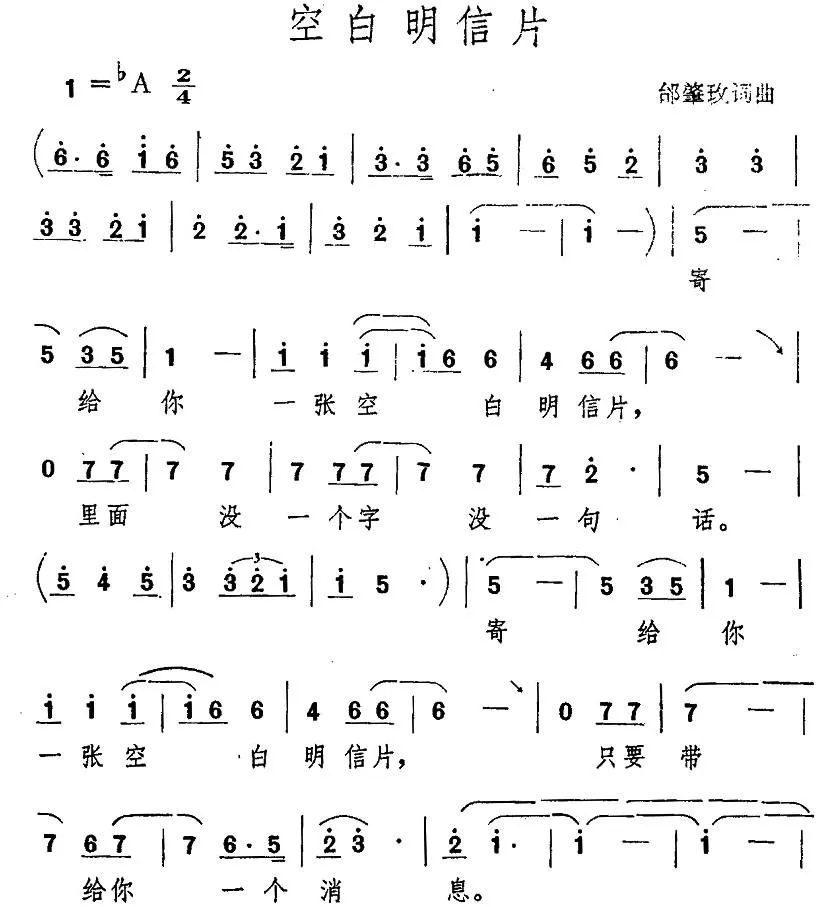 空白明信片
1=♭A 2/4
邰肇玫词曲
(6̇·6̇ i̇6̇ | 5̇3̇ 2̇i̇ | 3̇·3̇ 6̇5̇ | 6̇ 5̇ 2̇ | 3̇ 3̇ |
3̇3̇ 2̇i̇ | 2̇ 2̇·i̇ | 3̇ 2̇ i̇ | i̇ — | i̇ —) | 5 — |
寄
5 35 | 1 — | i̇ i̇ i̇ | i̇6 6 | 4 66 | 6 — |
给 你 一张空 白明信片，
0 77 | 7 7 | 7 77 | 7 7 | 7 2̇ · | 5 — |
里面 没一个字 没一句话。
(5̇ 4̇ 5̇ | 3̇ 3̇2̇i̇ | i̇ 5 ·) | 5 — | 5 35 | 1 — |
3
寄 给 你
i̇ i̇ i̇ | i̇6 6 | 4 66 | 6 — | 0 77 | 7 — |
一张空 白明信片， 只要带
7 67 | 7 6·5 | 2̇3̇ · | 2̇ i̇· | i̇ — | i̇ — |
给你 一个消 息。